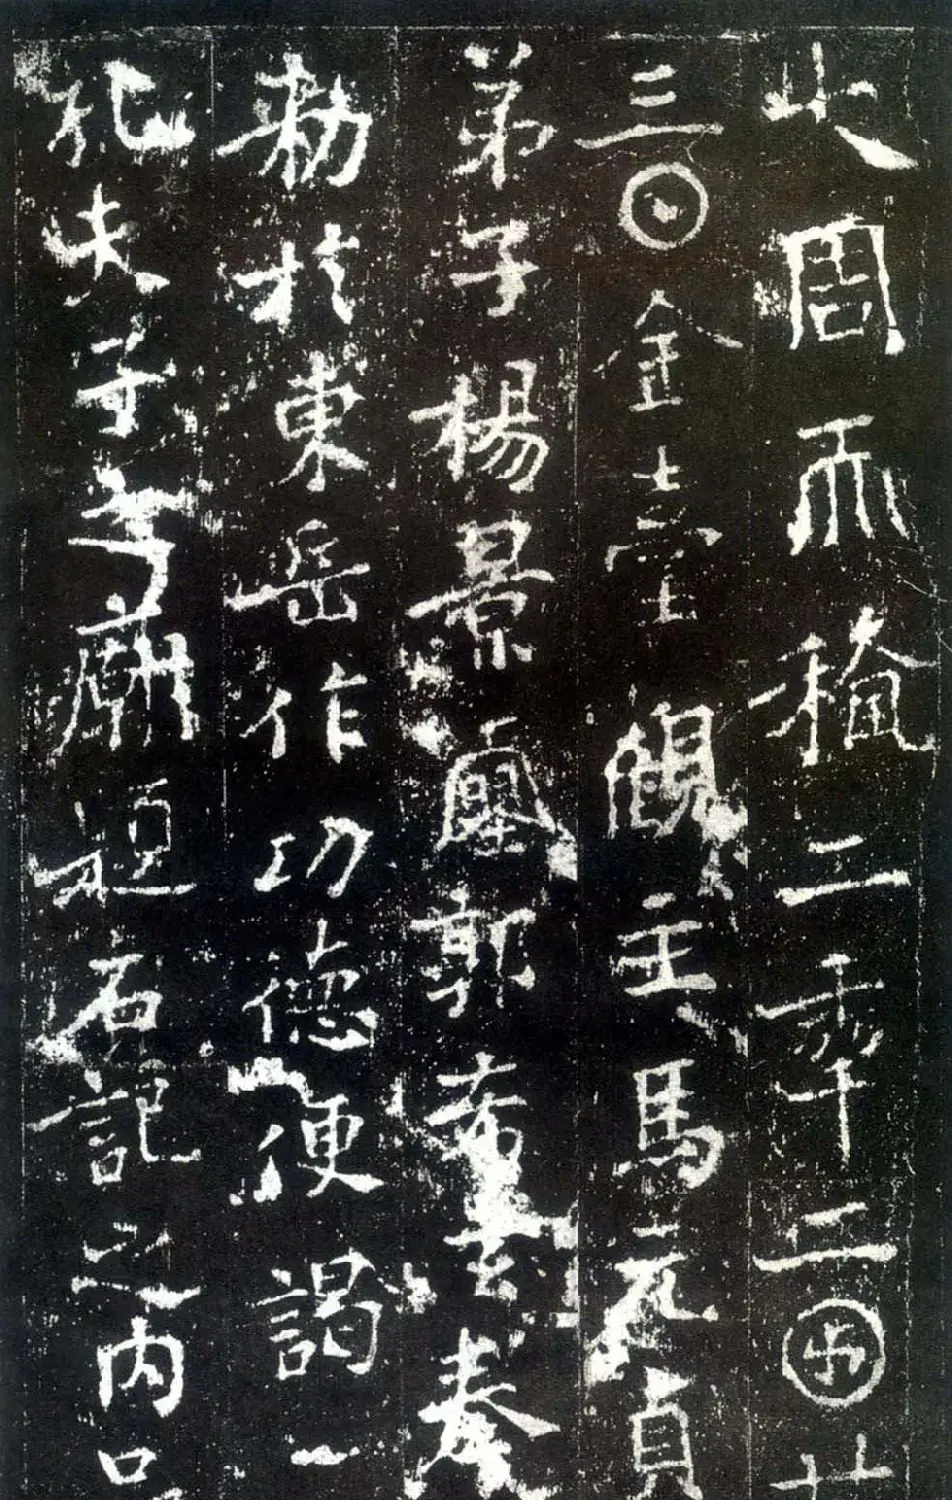 大周𠀑𥠢二𠡦二𠥱廿
三𡆠金臺觀主馬元貞
弟子楊景𡔈郭希玄奉
勑於東岳作功德便謁一
孔夫子之廟題石記之內